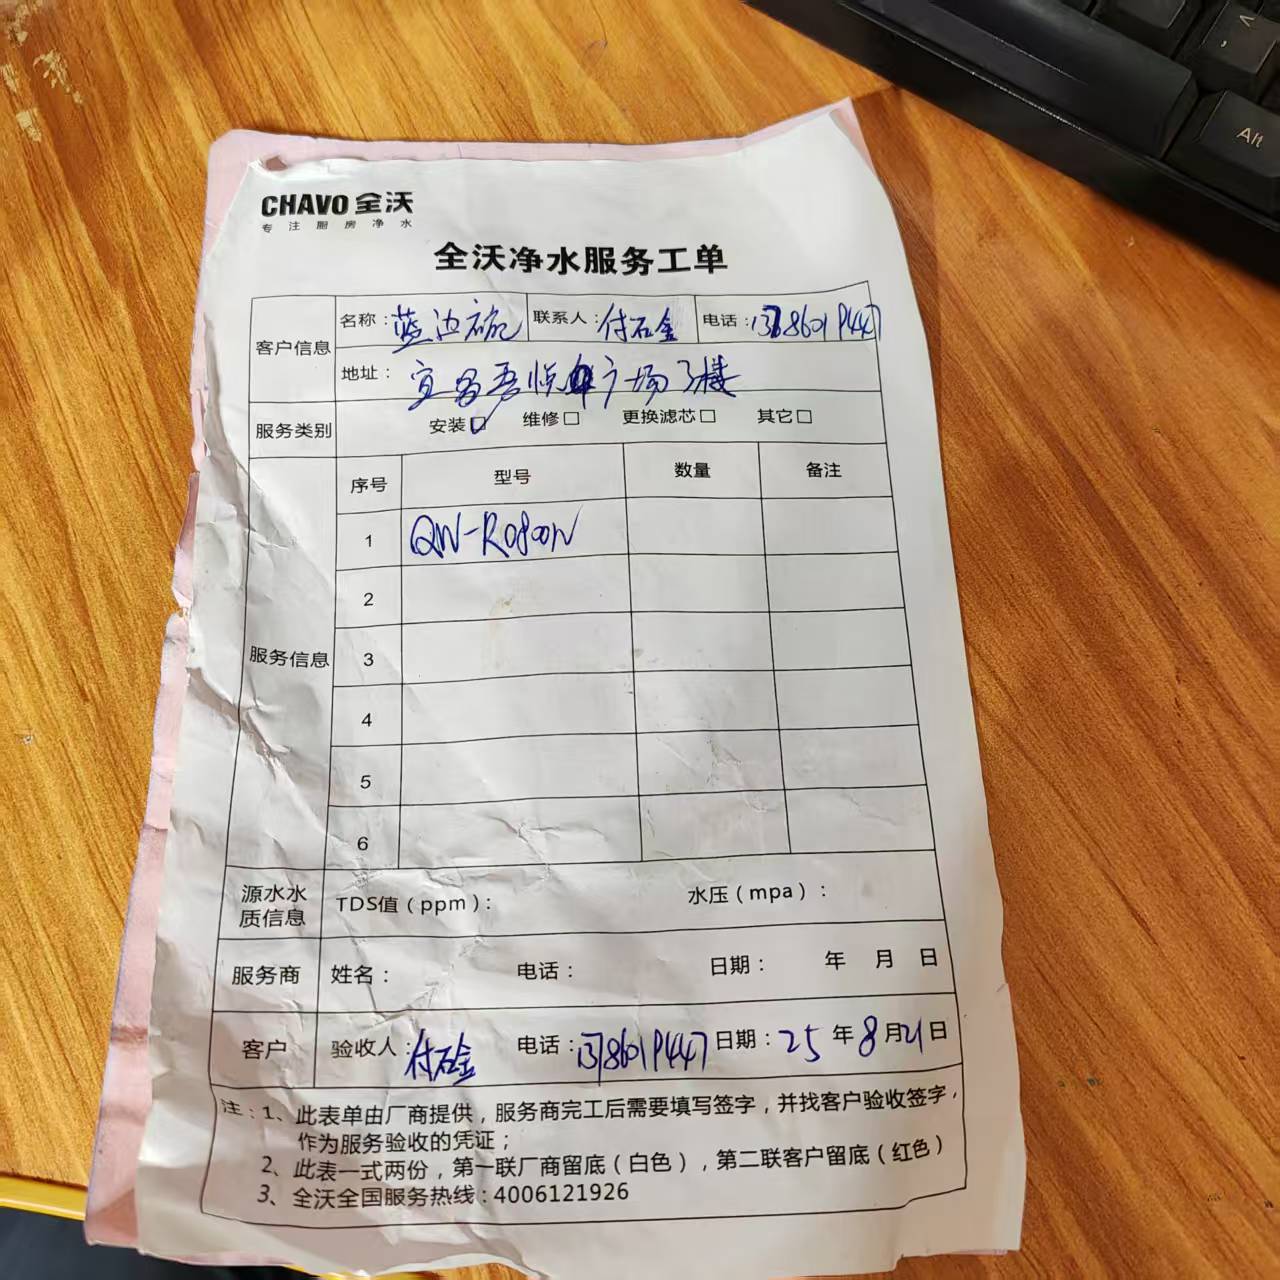 CHAVO 全沃
专注厨房净水
全沃净水服务工单
客户信息 名称：蓝边碗 联系人：付石金 电话：13786019447
地址：宜昌吾悦广场3楼
服务类别 安装□ 维修□ 更换滤芯□ 其它□
服务信息 序号 型号 数量 备注
1 QW-RO800W
2
3
4
5
6
源水水质信息 TDS值（ppm）： 水压（mpa）：
服务商 姓名： 电话： 日期： 年 月 日
客户 验收人：付石金 电话：13786019447 日期：25年8月21日
注：1、此表单由厂商提供，服务商完工后需要填写签字，并找客户验收签字，
作为服务验收的凭证；
2、此表一式两份，第一联厂商留底（白色），第二联客户留底（红色）
3、全沃全国服务热线：4006121926
Alt